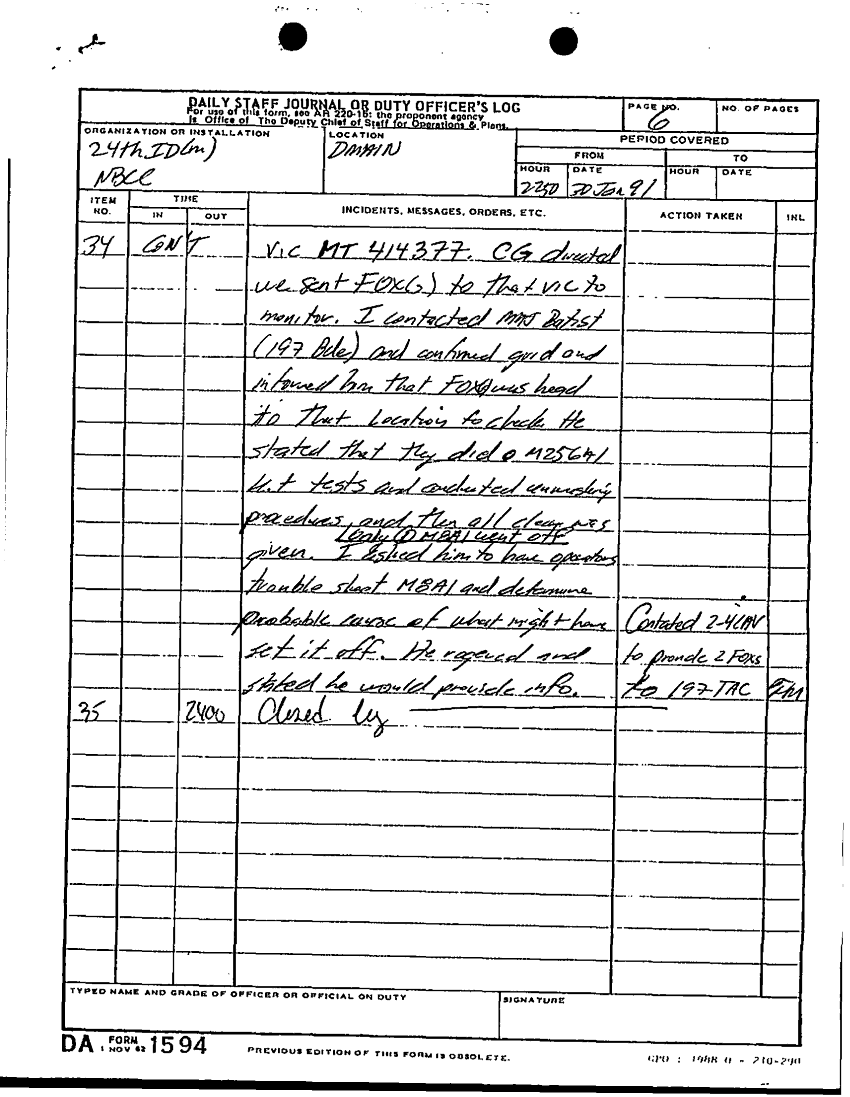 DAILY STAFF JOURNAL OR DUTY OFFICER'S LOG
For use of this form, see AR 220-15: the proponent agency
is Office of The Deputy Chief of Staff for Operations & Plans.
PAGE NO.
6
NO. OF PAGES
ORGANIZATION OR INSTALLATION
24th ID(m)
NBCE
LOCATION
DMAIN
PERIOD COVERED
FROM
TO
HOUR
DATE
HOUR
DATE
2250
30 Jan 91
ITEM NO.
TIME
IN
OUT
INCIDENTS, MESSAGES, ORDERS, ETC.
ACTION TAKEN
INL
34 CON'T Vic MT 414377. CG directed
we sent FOX(s) to that vic to
monitor. I contacted MAJ Batist
(197 Bde) and confirmed grid and
informed him that FOX was head
to that Location to check. He
stated that they did a M256A1
kit tests and conducted unmasking
procedures, and then all clear was
Only 1 M8A1 went off
given. I asked him to have operators
trouble shoot M8A1 and determine
probable cause of what might have Contated 2-4CAV
set it off. He rogered and to provide 2 Foxs
stated he would provide info. to 197 TAC
35 2400 Closed log
TYPED NAME AND GRADE OF OFFICER OR OFFICIAL ON DUTY
SIGNATURE
DA FORM 1 NOV 62 1594
PREVIOUS EDITION OF THIS FORM IS OBSOLETE.
GPO : 1988 O - 210-290